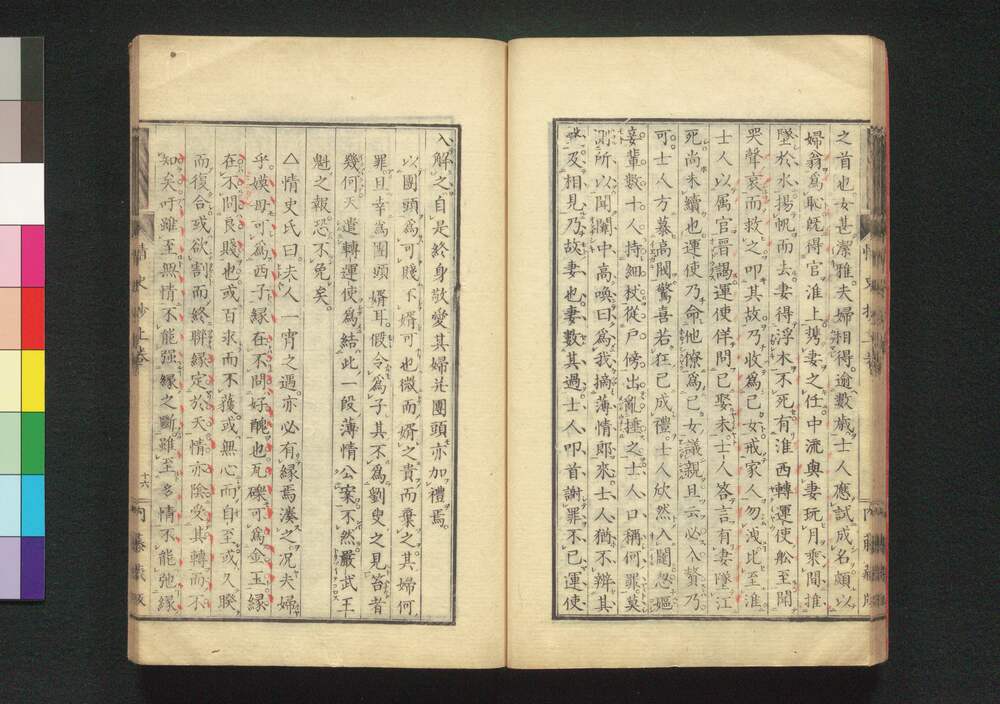 之首也女甚潔雅夫婦相得逾數歲士人應試成名頗以
婦翁爲恥既得官淮上携妻之任中流與妻玩月乘間推
墜於水揚帆而去妻得浮木不死有淮西轉運使船至聞
哭聲哀而救之叩其故乃收爲己女戒家人勿洩比至淮
士人以属官晋謁運使佯問已娶未士人答言有妻墜江
死尚未續也運使乃命他僚爲己女議親且云必入贅乃
可士人方慕高閥驚喜若狂已成禮士人欣然入闥忽嫗
妾輩數十人持細杖從戸傍出亂捶之士人口稱何罪莫
測所以聞闈中高喚曰爲我摘薄情郎來士人猶不辨其
及相見乃故妻也妻數其過士人叩首謝罪不已運使
入解之自是終身敬愛其婦并團頭亦加禮焉
以團頭爲可賤不婿可也微而婿之貴而棄之其婦何
罪且幸爲團頭婿耳假令爲子其不爲劉叟之見笞者
幾何天遣轉運使爲結此一段薄情公案不然嚴武王
魁之報恐不免矣
△情史氏曰夫人一宵之遇亦必有縁焉湊之况夫婦
乎嫫母可爲西子縁在不問好醜也瓦礫可爲金玉縁
在不問良賤也或百求而不獲或無心而自至或久暌
而復合或欲割而終聯縁定於天情亦陰受其轉而不
知矣吁雖至無情不能强縁之斷雖至多情不能弛縁
情史抄上卷
十六